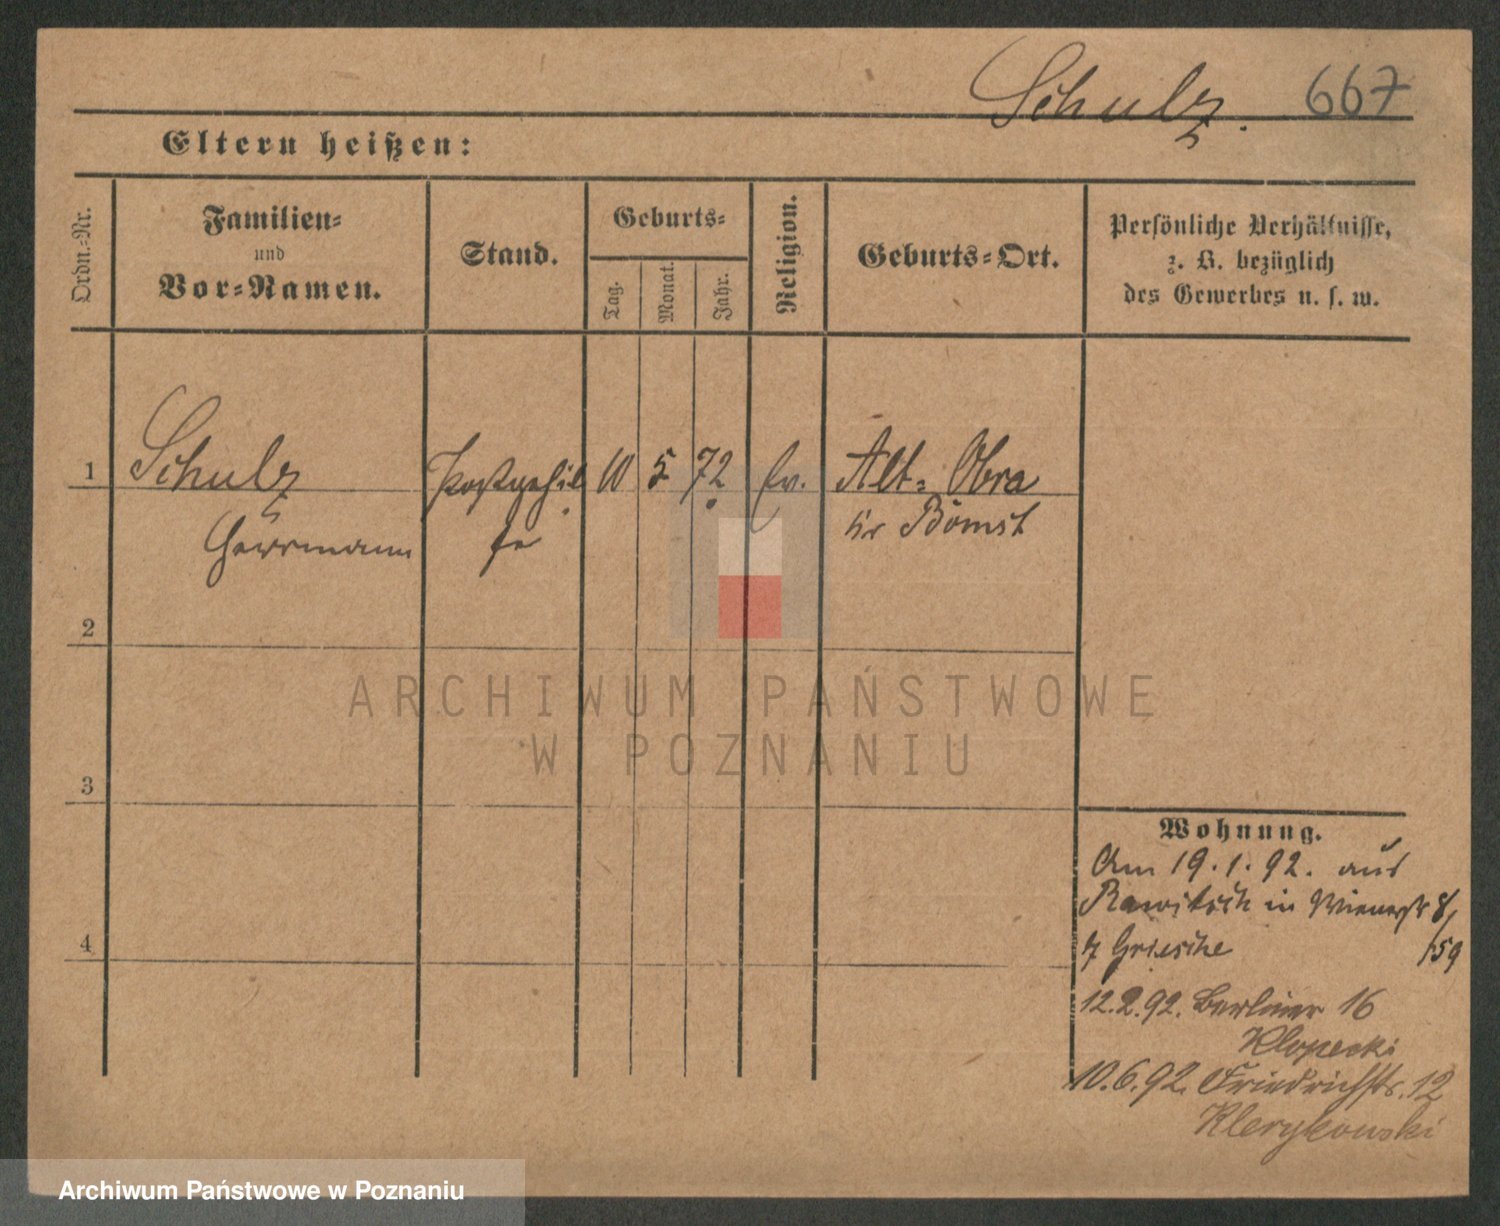 Schulz. 667
Eltern heißen:
Ordn.=Nr.
Familien=
und
Vor=Namen.
Stand.
Geburts=
Tag.
Monat.
Jahr.
Religion.
Geburts=Ort.
Persönliche Verhältnisse,
z. B. bezüglich
des Gewerbes u. s. w.
1 Schulz Postgehil 10 5 72 Ev. Alt= Obra
Herrmann fe Kr Bomst
2
ARCHIWUM PAŃSTWOWE
W POZNANIU
3
Wohnung.
Am 19.1.92. aus
Rawitsch in Wienerstr 8/
b/ Griesche /59
4
12.2.92. Berliner 16
Klopecki
10.6.92. Friedrichstr. 12
Klerykowski
Archiwum Państwowe w Poznaniu